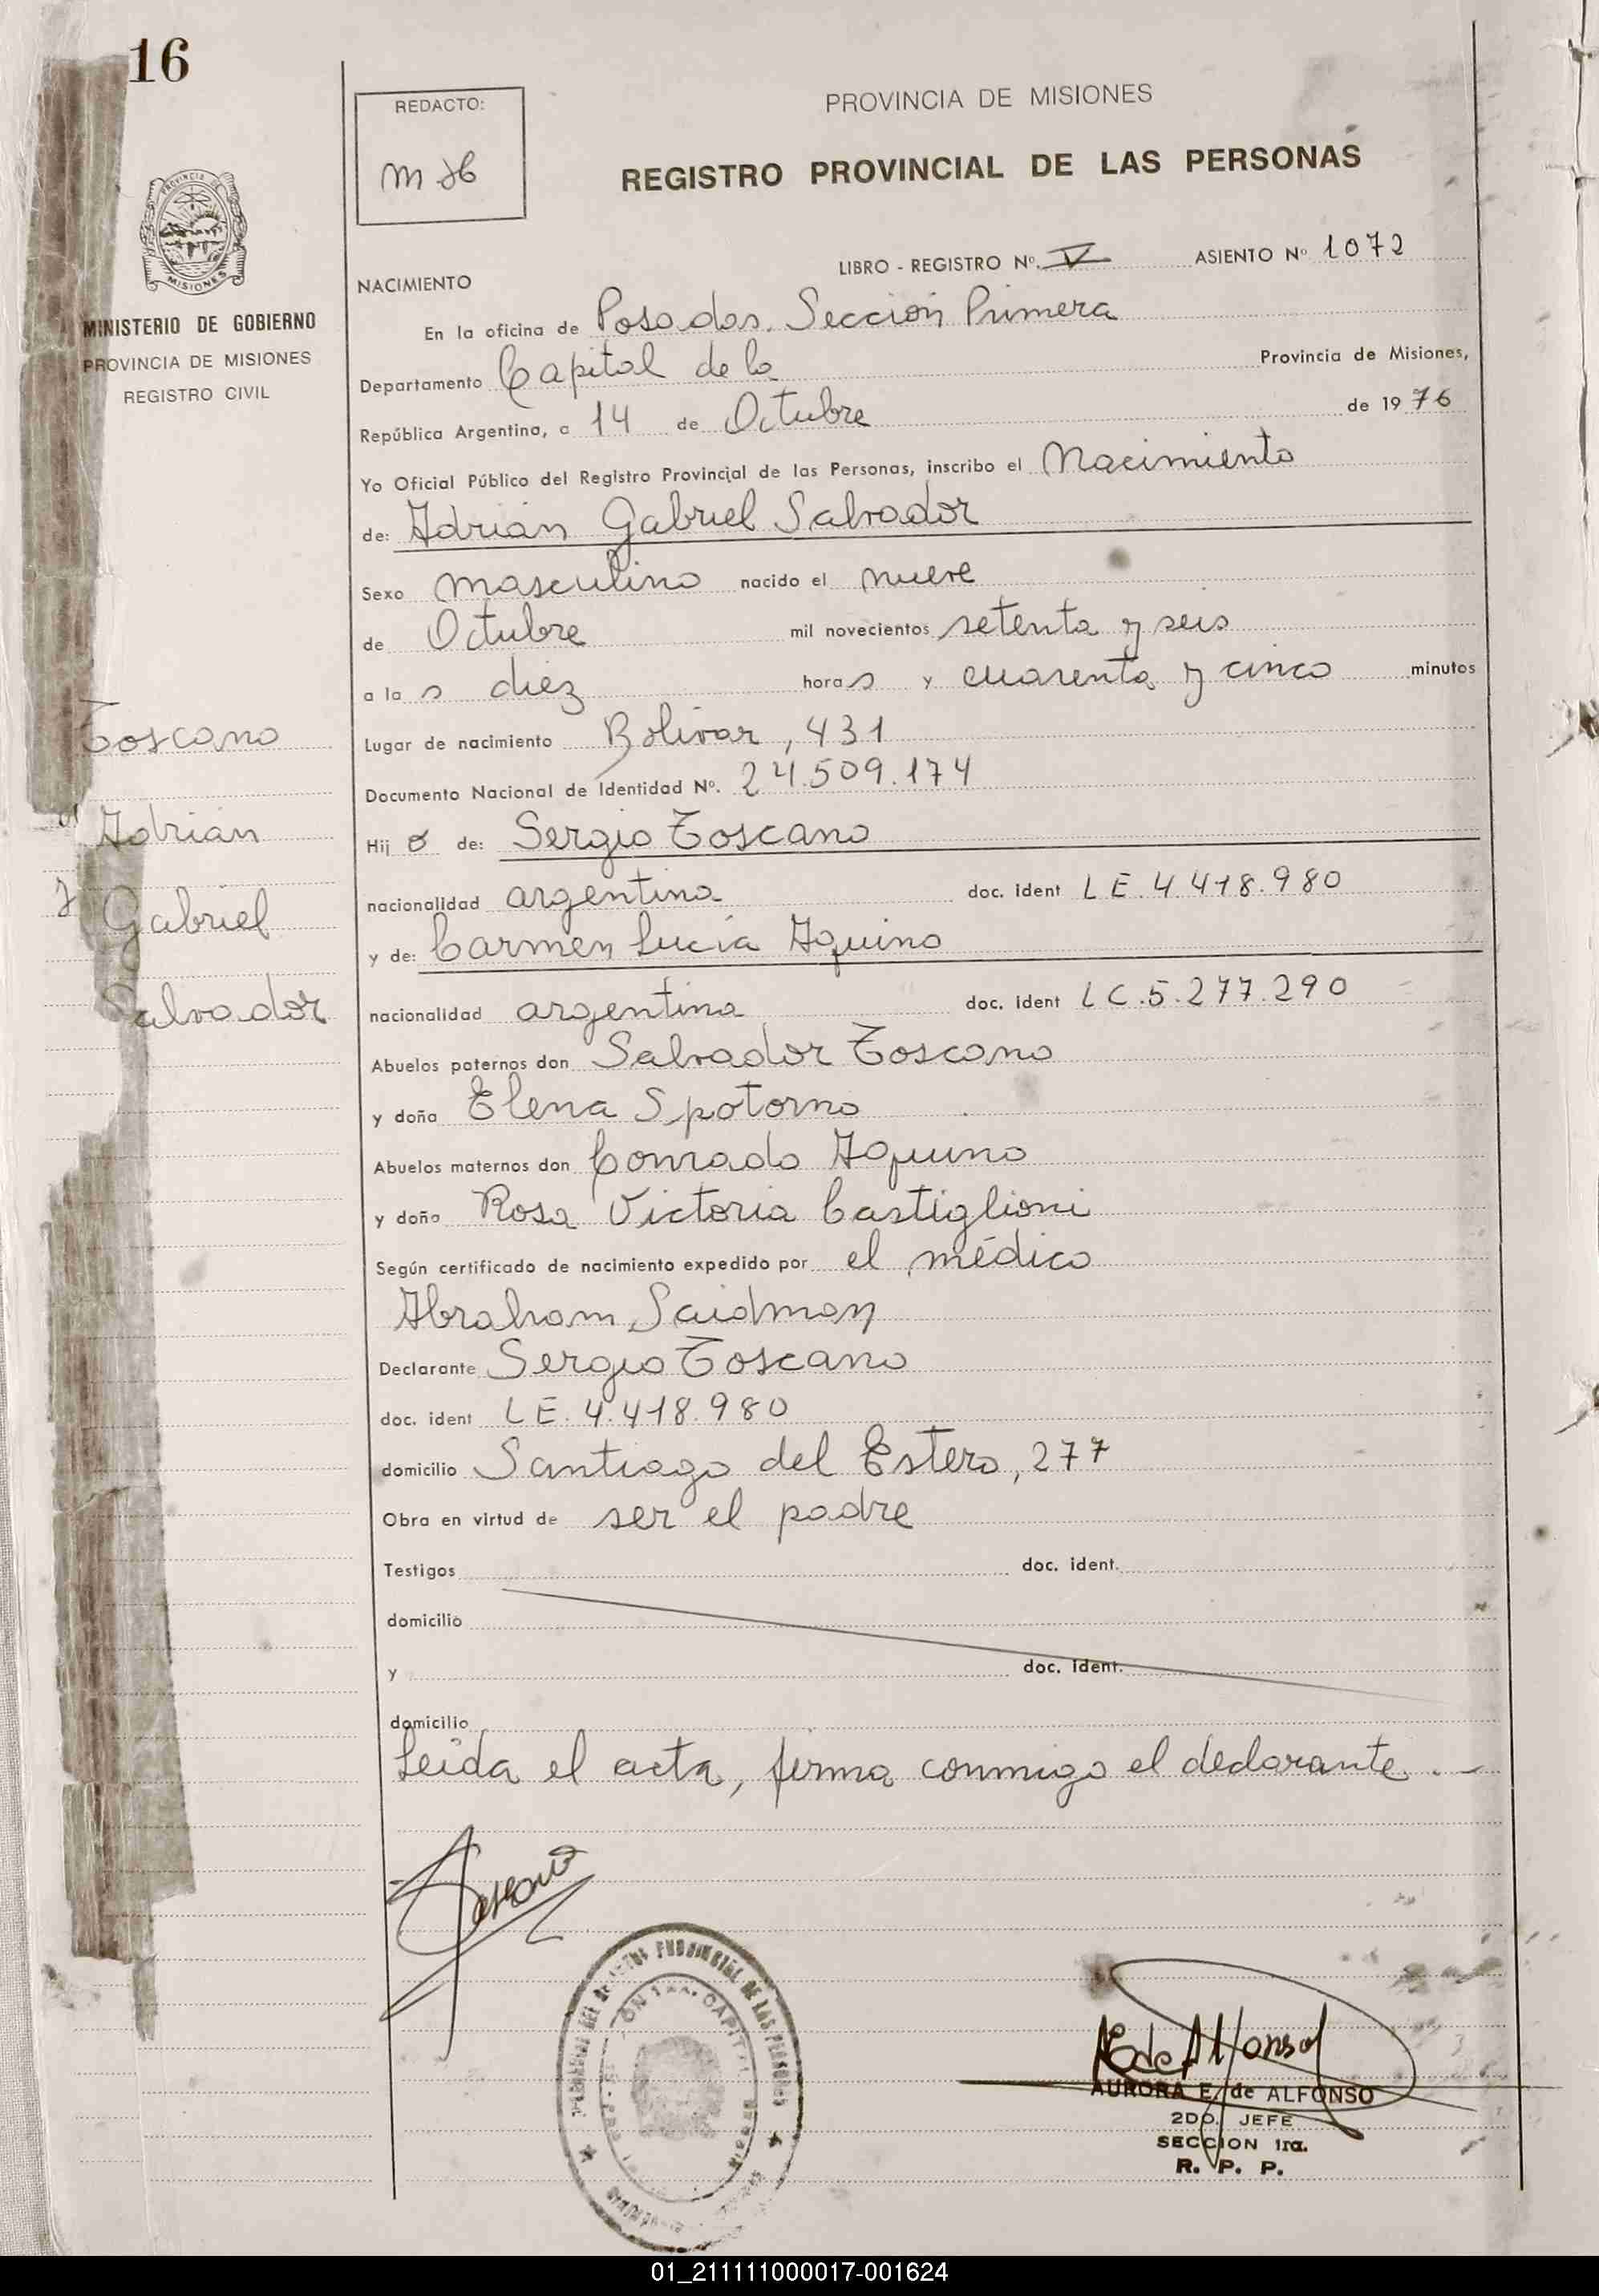 16
REDACTO:
PROVINCIA DE MISIONES
REGISTRO PROVINCIAL DE LAS PERSONAS
PROVINCIA DE
MISIONES
MINISTERIO DE GOBIERNO
PROVINCIA DE MISIONES
REGISTRO CIVIL
LIBRO - REGISTRO Nº. V ASIENTO Nº 1072
NACIMIENTO
En la oficina de Posadas. Sección Primera
Departamento Capital de la Provincia de Misiones,
República Argentina, a 14 de Octubre de 1976
Yo Oficial Público del Registro Provincial de las Personas, inscribo el Nacimiento
de: Adrián Gabriel Salvador
Sexo masculino nacido el nueve
de Octubre mil novecientos setenta y seis
a la s diez hora s y cuarenta y cinco minutos
Toscano
Lugar de nacimiento Bolívar, 431
Documento Nacional de Identidad Nº. 24.509.174
Adrián
Hij o de: Sergio Toscano
nacionalidad argentina doc. ident LE. 4.418.980
Gabriel
y de: Carmen Lucía Aquino
Salvador
nacionalidad argentina doc. ident LC. 5.277.290
Abuelos paternos don Salvador Toscano
y doña Elena Spotorno
Abuelos maternos don Conrado Aquino
y doña Rosa Victoria Castiglioni
Según certificado de nacimiento expedido por el médico
Abraham Saidman
Declarante Sergio Toscano
doc. ident LE. 4.418.980
domicilio Santiago del Estero, 277
Obra en virtud de ser el padre
Testigos doc. ident.
domicilio
y doc. ident.
domicilio
Leída el acta, firma conmigo el declarante. -
AEdeAlfonso
AURORA E. de ALFONSO
2DO. JEFE
SECCION 1ra.
R. P. P.
01_211111000017-001624